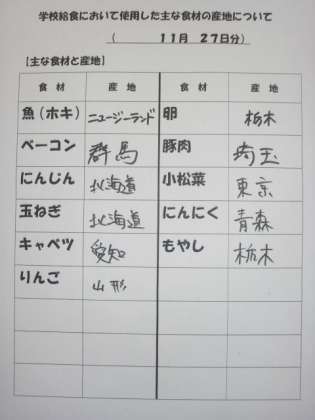 学校給食において使用した主な食材の産地について
（ 11月 27日分）
【主な食材と産地】
食 材 産 地 食 材 産 地
魚（ホキ） ニュージーランド 卵 栃木
ベーコン 群馬 豚肉 埼玉
にんじん 北海道 小松菜 東京
玉ねぎ 北海道 にんにく 青森
キャベツ 愛知 もやし 栃木
りんご 山形